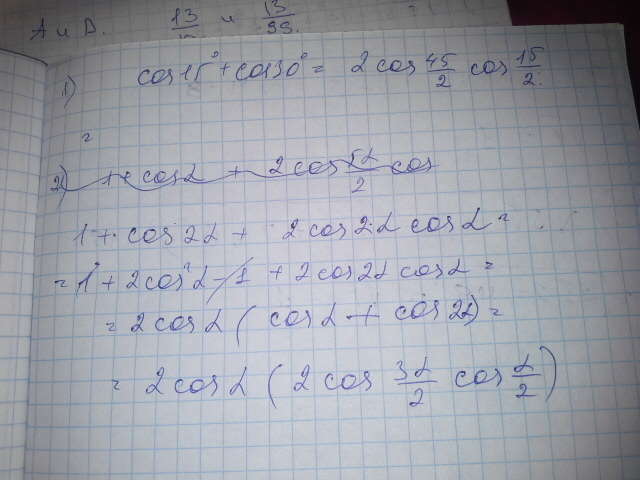 А и В. 13 и 13/99.
1) cos 15° + cos 30° = 2 cos 45/2 cos 15/2.
=
2) 1 + cos α + 2 cos 5α/2 cos
1 + cos 2α + 2 cos 2α cos α =
= 1 + 2 cos² α - 1 + 2 cos 2α cos α =
= 2 cos α ( cos α + cos 2α) =
= 2 cos α ( 2 cos 3α/2 cos α/2 )